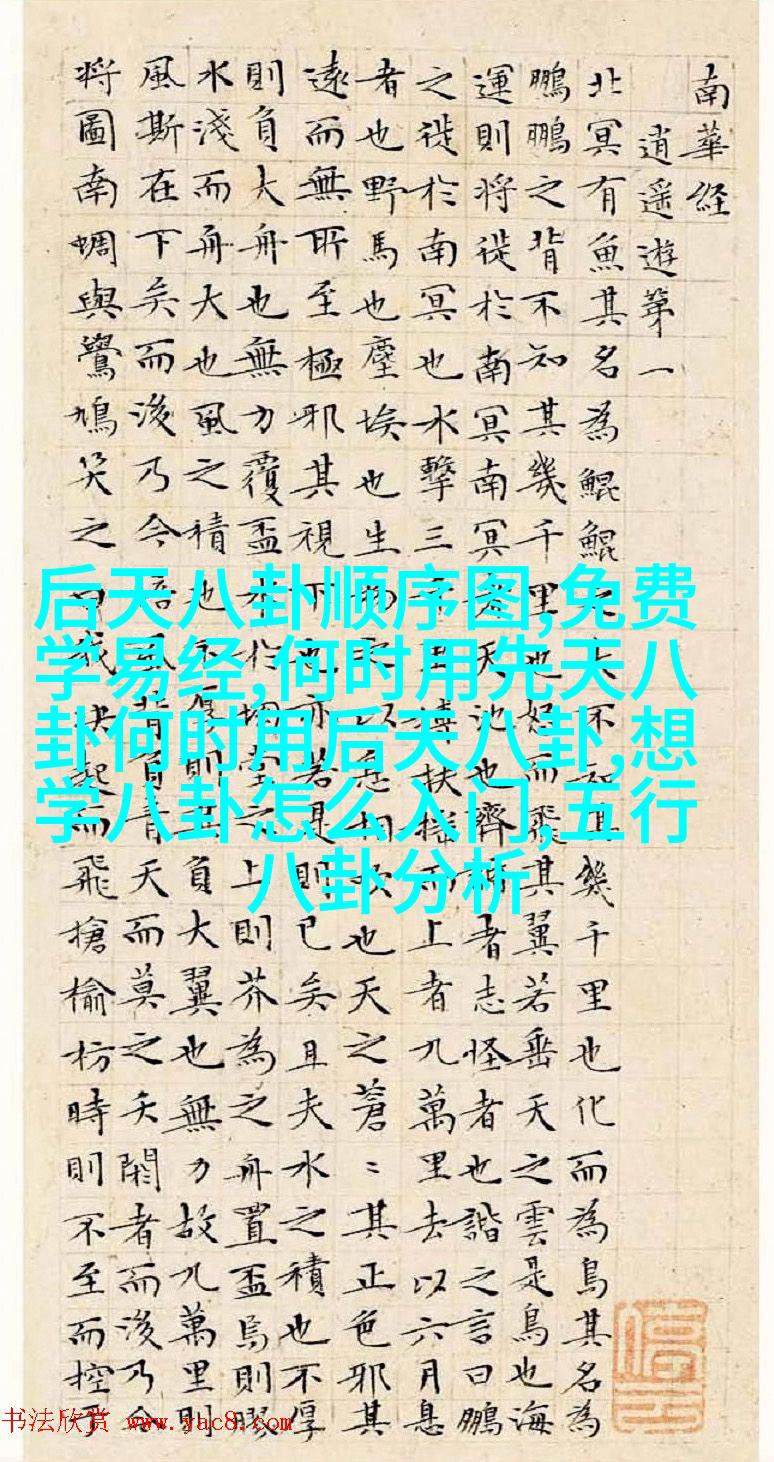 南華経
逍遥遊第一
北冥有魚其名為鯤鯤之大不知其幾千里也化而為鳥其名為
鵬鵬之背不知其幾千里也怒而飛其翼若垂天之雲是鳥也海
運則將徙於南冥南冥者天池也齊諧者志怪者也諧之言曰鵬
之徙於南冥也水擊三千里摶扶搖而上者九萬里去以六月息
者也野馬也塵埃也生物之以息相吹也天之蒼〻其正色邪其
遠而無所至極邪其視下也亦若是則已矣且夫水之積也不厚
則負大舟也無力覆盃水於坳堂之上則芥為之舟置盃焉則膠
水淺而舟大也風之積也不厚則其負大翼也無力故九萬里則
風斯在下矣而後乃今培風背負青天而莫之夭閼者而後乃今
將圖南蜩與鷽鳩笑之曰我決起而飛搶榆枋時則不至而控於
后天八卦顺序图,免费
学易经,何时用先天八
卦何时用后天八卦,想
学八卦怎么入门,五行
八卦分析
书法欣赏 www.yac8.com